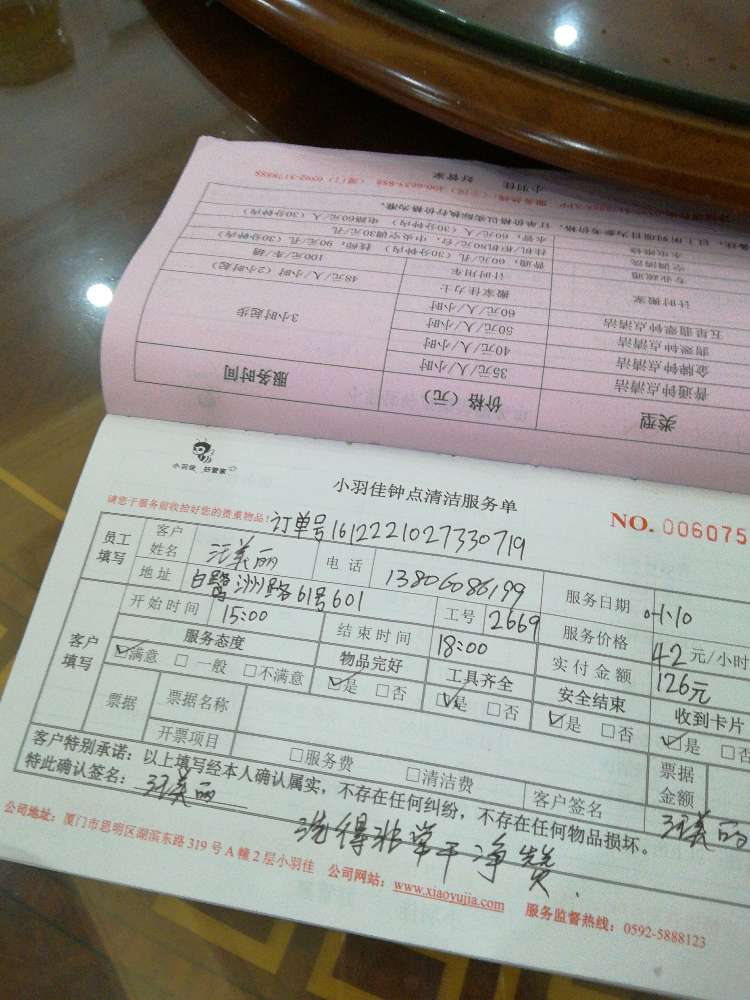 小羽佳 好管家
类型 价格（元） 服务时间
普通钟点清洁 35元/人/小时
金牌钟点清洁 40元/人/小时
翡翠钟点清洁 50元/人/小时 3小时起步
五星翡翠钟点清洁 60元/人/小时
计时搬家 搬家佳力士 48元/人/小时（2小时起）
计时用车 100元/车·辆
小羽佳 好管家
小羽佳钟点清洁服务单
请您于服务前收拾好您的贵重物品！
订单号1612221027330719
NO. 006075
员工填写 客户姓名 汪美丽 电话 13806086199 服务日期
地址 白鹭洲路61号601 工号 2669 服务价格 42 元/小时
客户填写 开始时间 15:00 结束时间 18:00 实付金额 126元
服务态度 物品完好 工具齐全 安全结束 收到卡片
满意 一般 不满意 是 否 是 否 是 否 是 否
票据 票据名称
开票项目 服务费 清洁费 客户签名 汪美丽 票据金额
客户特别承诺：以上填写经本人确认属实，不存在任何纠纷，不存在任何物品损坏。
特此确认签名：汪美丽
洗得非常干净赞.
公司地址：厦门市思明区湖滨东路319号A幢2层小羽佳 公司网站：www.xiaoyujia.com 服务监督热线：0592-5888123